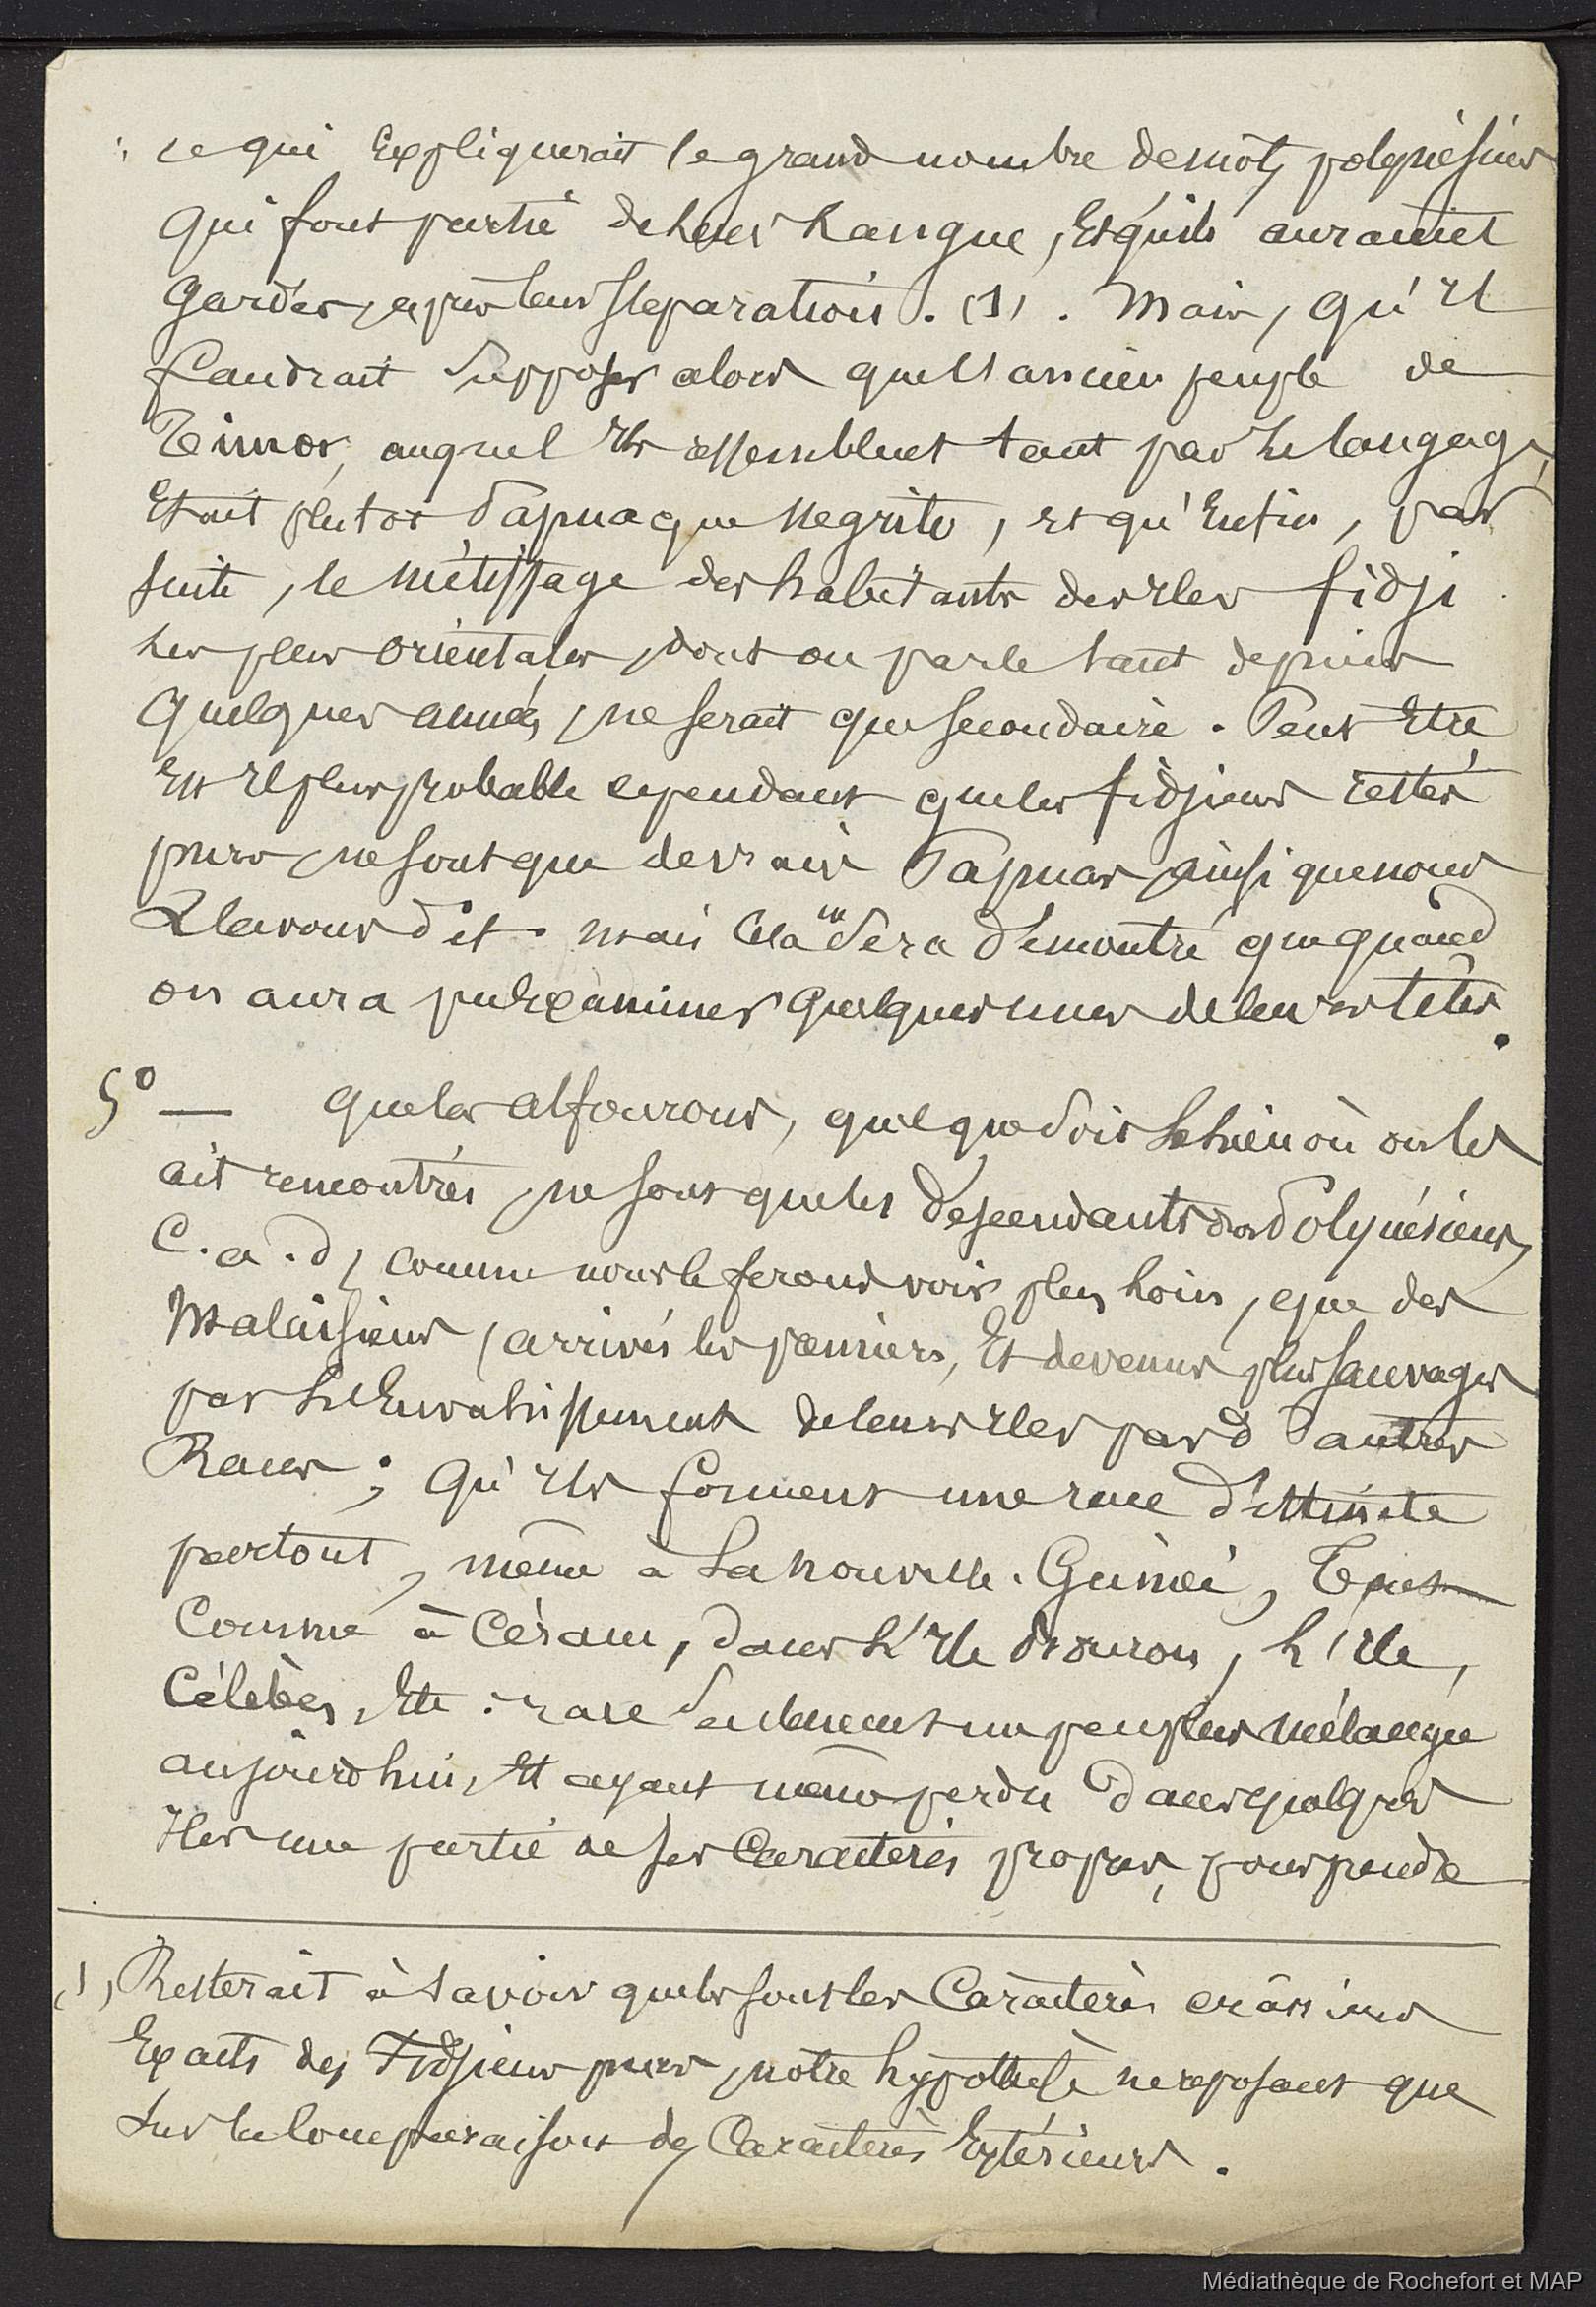 ; ce qui Expliquerait le grand nombre de mots polynésiens
qui font partie de leur Langue, Et qu'ils auraient
Gardés, après leur séparation. (1). Mais, qu'il
faudrait supposer alors que l'ancien peuple de
Timor, auquel ils ressemblent tant par le langage,
Etait plutot Papua que Negrito, et qu'Enfin, par
suite, le métissage des habitants des iles fidji
les plus orientales, dont on parle tant depuis
quelques années, ne serait que secondaire. Peut Etre
Est il plus probable cependant que les fidjiens restés
purs, ne sont que de vrais Papuas, ainsi que nous
l'avons dit. mais cela ne sera démontré que quand
on aura pu Examiner quelques unes de leurs têtes.
5° — que les alfourous, quelque soit le lieu où on les
ait rencontrés, ne sont que les descendants des Polynésiens,
C.a.d, comme nous le ferons voir plus loin, que des
Malaisiens, arrivés les premiers, Et devenus plus sauvages
par l'Envahissement de leurs iles par d'autres
Races; qu'ils forment une race distincte
partout, même à la Nouvelle-Guinée, Tout
Comme à Céram, dans l'ile Bourou, l'ile
Célèbes, Etc: race seulement un peu plus mélangée
aujourd'hui, Et ayant même perdu dans quelques
Iles une partie de ses Caractères propres, pour prendre
(1) Resterait à savoir quels sont les Caractères crâniens
Exacts des Fidjiens purs, notre hypothèse ne reposant que
sur la Comparaison des Caractères Extérieurs.
Médiathèque de Rochefort et MAP